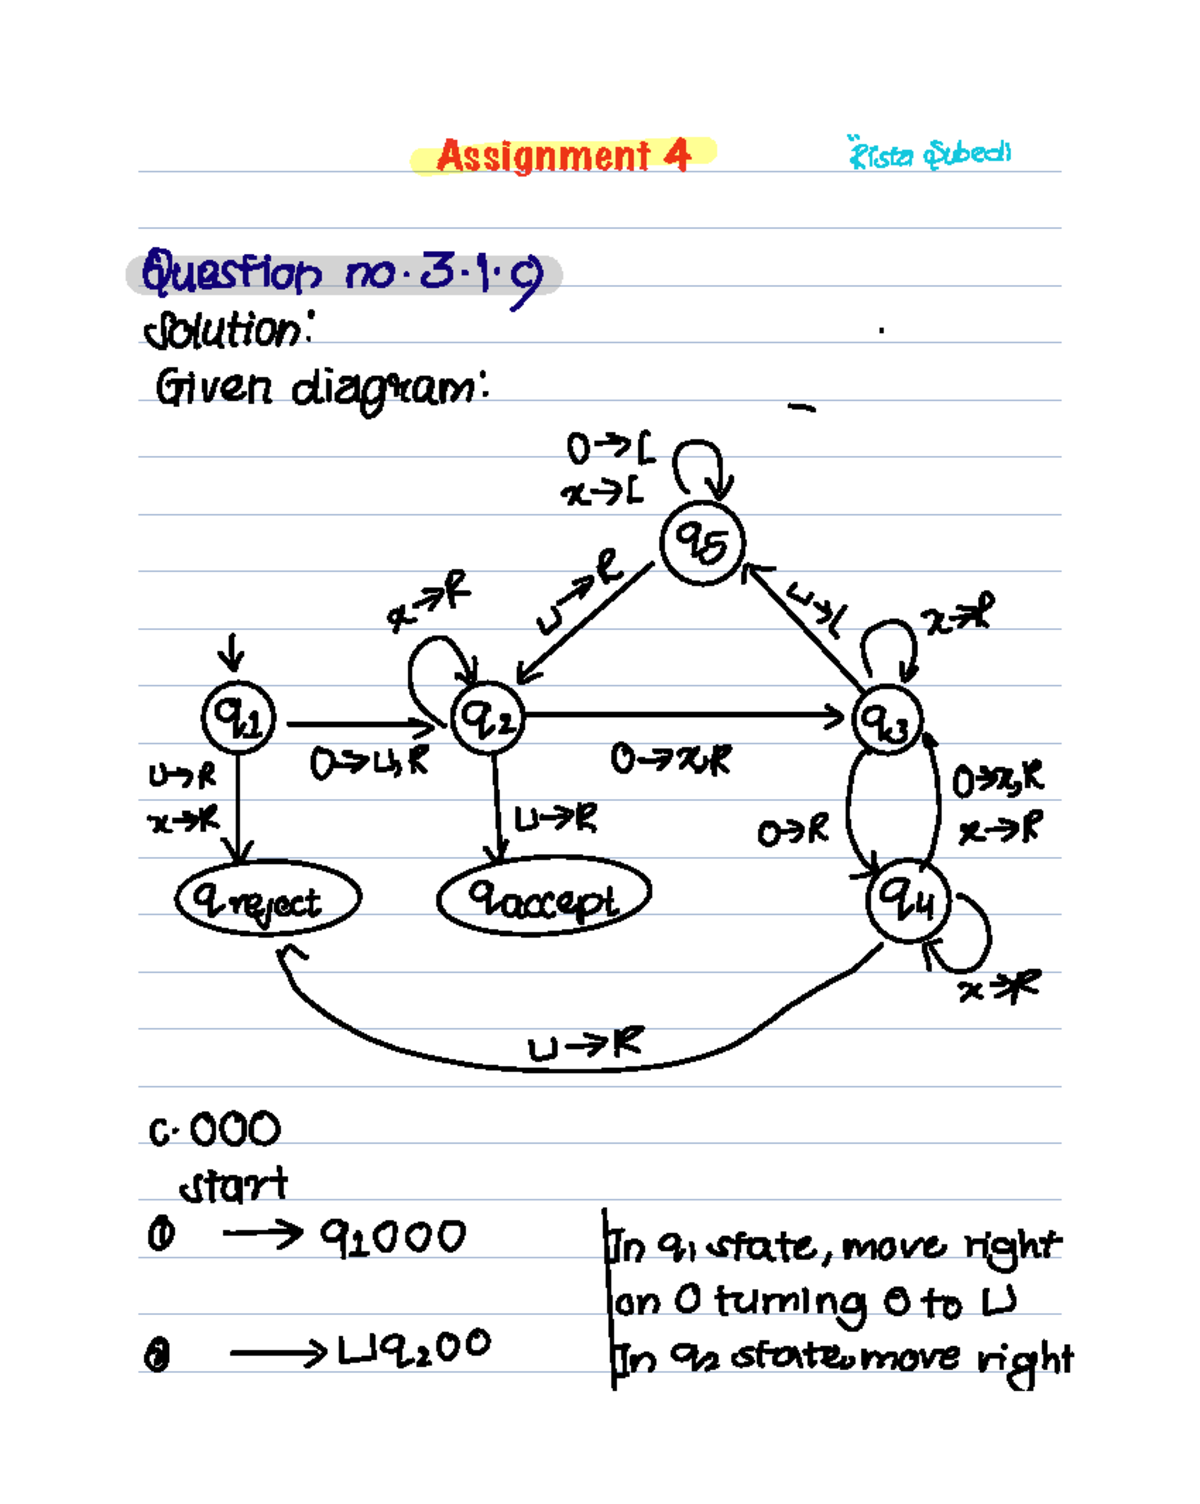 Assignment 4
Rista Subedi
Question no. 3.1.c)
Solution:
Given diagram:
0→L
x→L
q5
x→R
⊔→R
⊔→L
x→R
q1
q2
q3
0→⊔,R
0→x,R
⊔→R
x→R
⊔→R
0→R
0→x,R
x→R
q reject
q accept
q4
x→R
⊔→R
c. 000
start
① → q1000
In q1 state, move right
on 0 turning 0 to ⊔
② → ⊔q200
In q2 state, move right